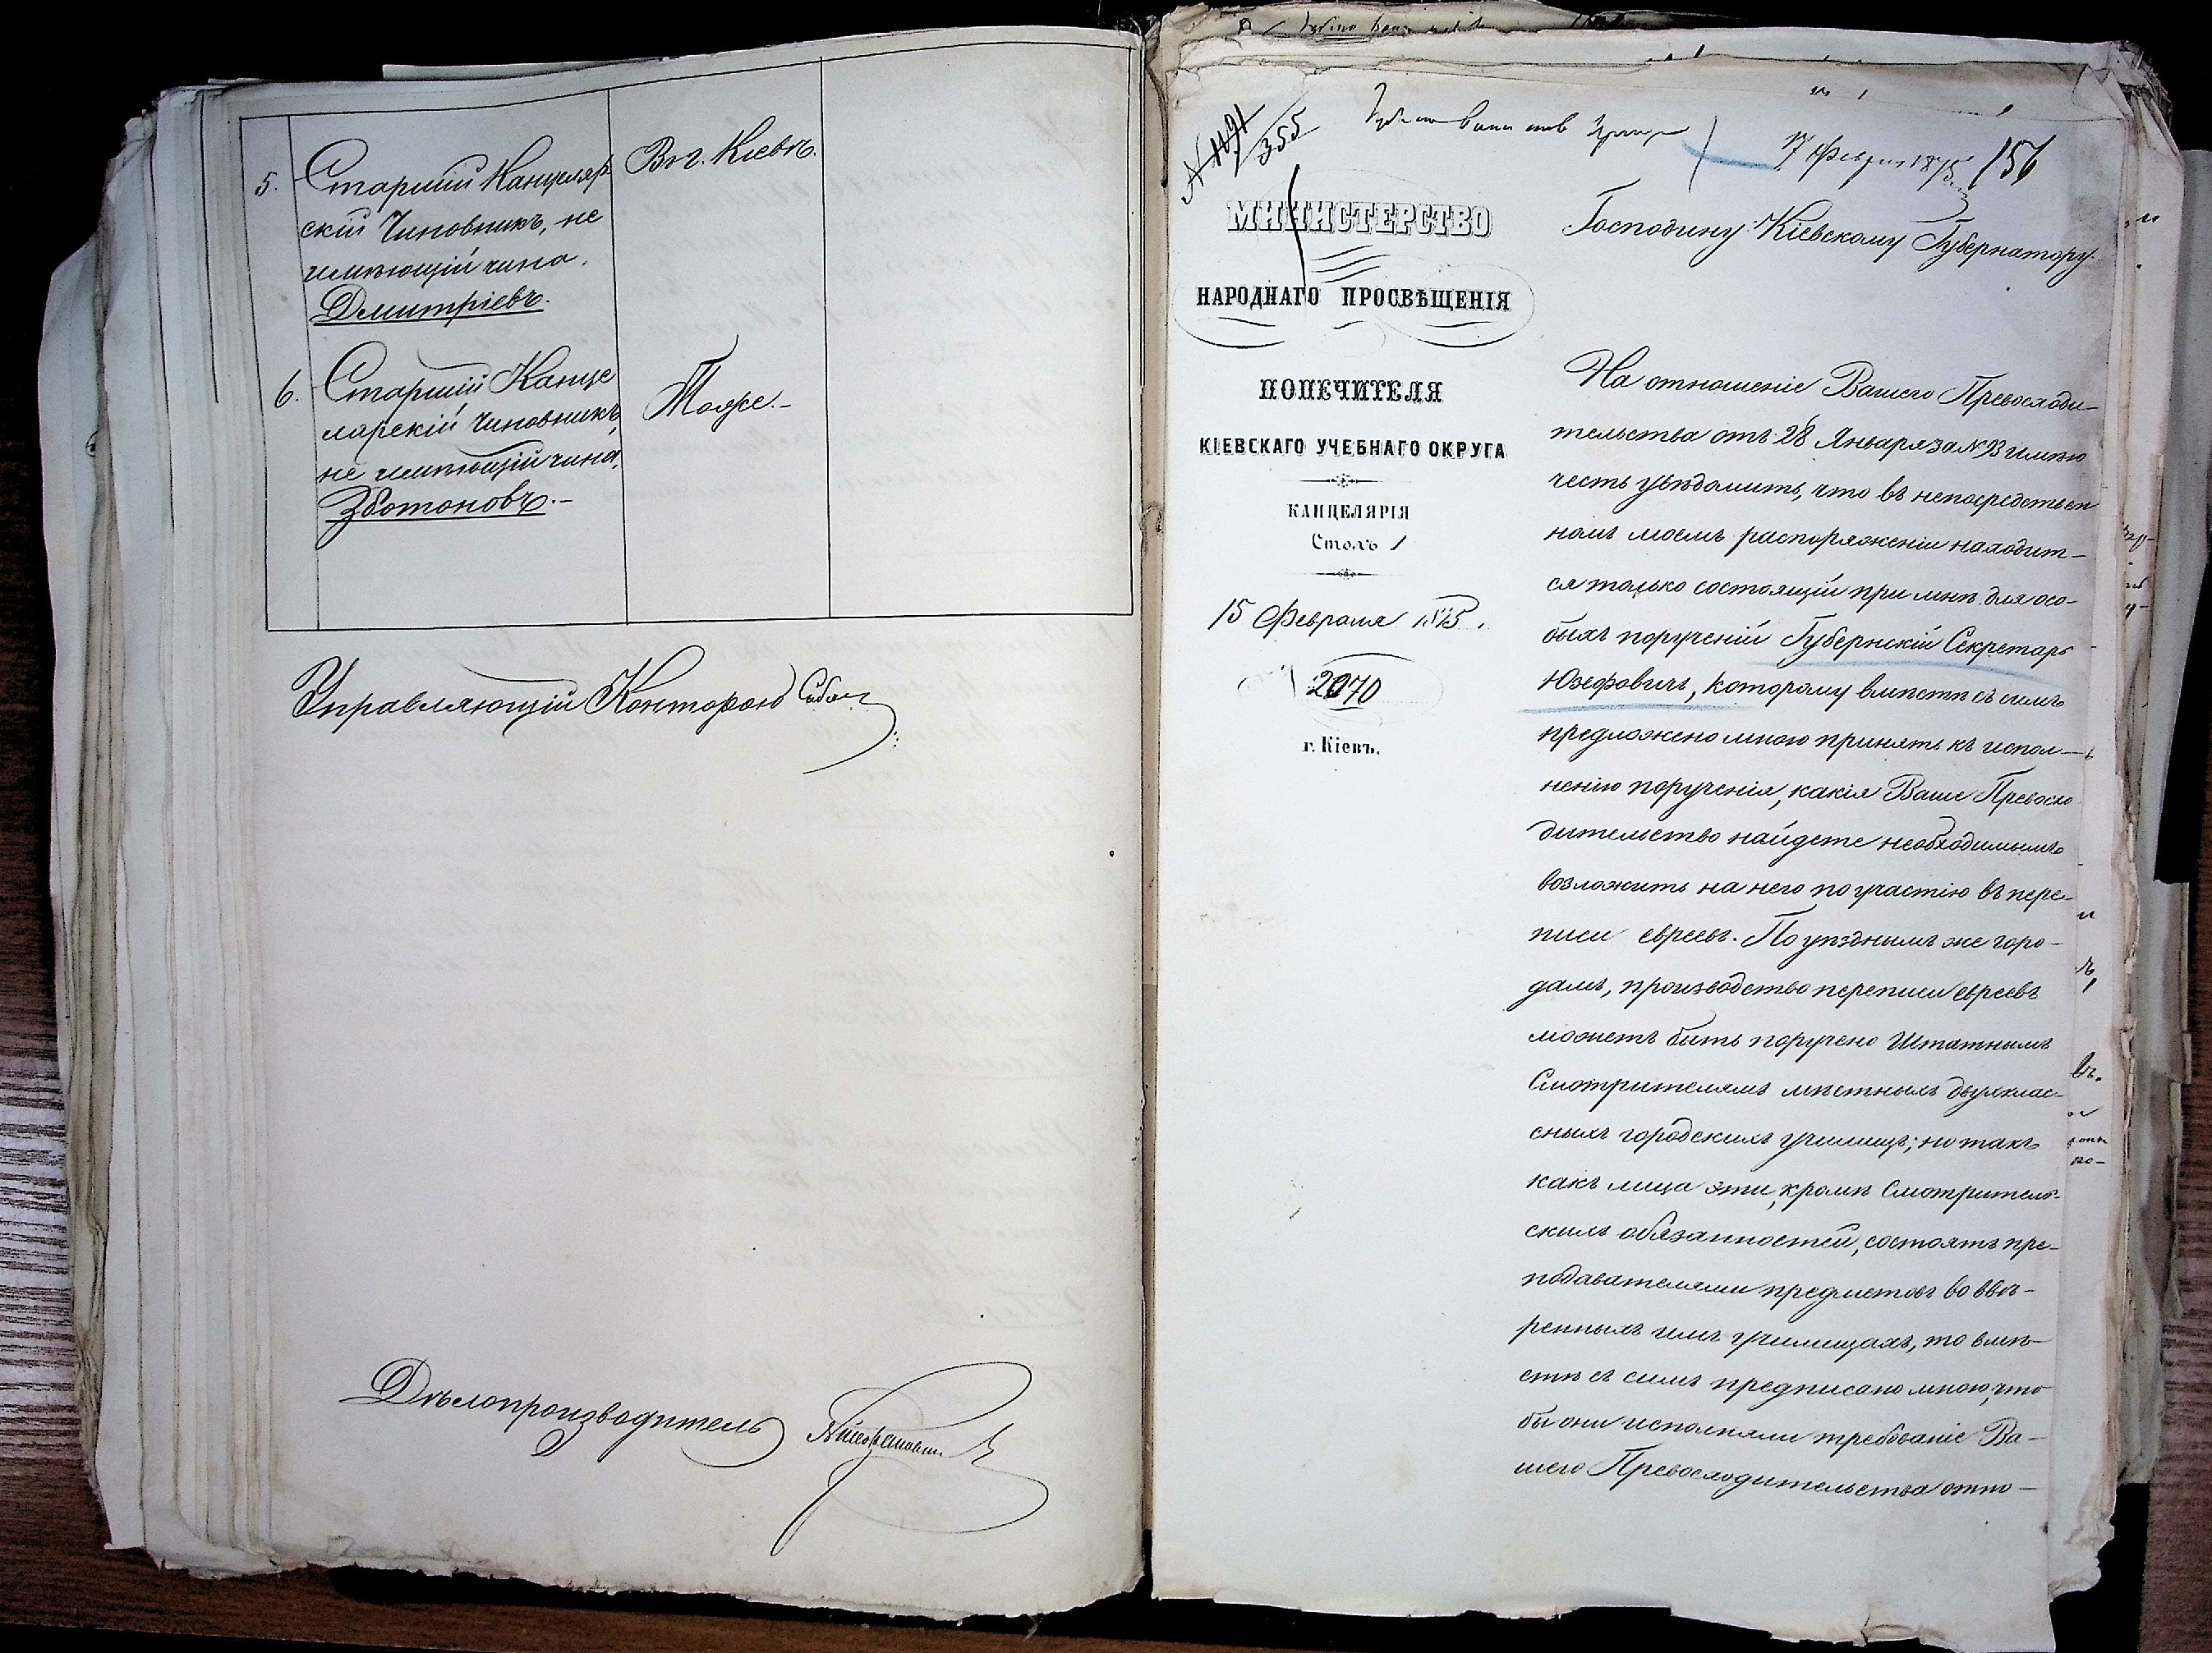 5.
Старшій Канцеляр
скій Чиновникъ, не
имѣющій чина.
Дмитріевъ.
Въ г. Кіевѣ.
6.
Старшій Канце
лярскій Чиновникъ,
не имѣющій чина,
Зботоновъ.–
Тоже.–
Управляющій Конторою
Дѣлопроизводитель
355
17 Февраля 1875
156
МИНИСТЕРСТВО
НАРОДНАГО ПРОСВѢЩЕНІЯ
ПОПЕЧИТЕЛЯ
КІЕВСКАГО УЧЕБНАГО ОКРУГА
КАНЦЕЛЯРІЯ
Столъ 1
15 Февраля 1875.
2070
г. Кіевъ.
Господину Кіевскому Губернатору.
На отношеніе Вашего Превосходи–
тельства отъ 28 Января за № 93 имѣю
честь увѣдомить, что въ непосредствен
номъ моемъ распоряженіи находит–
ся только состоящій при мнѣ для осо–
быхъ порученій Губернскій Секретарь
Юзефовичъ, которому вмѣстѣ съ симъ
предложено мною принять къ испол–
ненію порученія, какія Ваше Превосхо
дительство найдете необходимымъ
возложить на него по участію въ пере–
писи евреевъ. По уѣзднымъ же горо–
дамъ, производство переписи евреевъ
можетъ быть поручено Штатнымъ
Смотрителямъ мѣстныхъ двухклас–
сныхъ городскихъ училищъ; но такъ
какъ лица эти, кромѣ Смотритель–
скихъ обязанностей, состоятъ пре–
подавателями предметовъ во ввѣ–
ренныхъ имъ училищахъ, то вмѣ–
стѣ съ симъ предписано мною, что
бы они исполняли требованіе Ва–
шего Превосходительства отно–